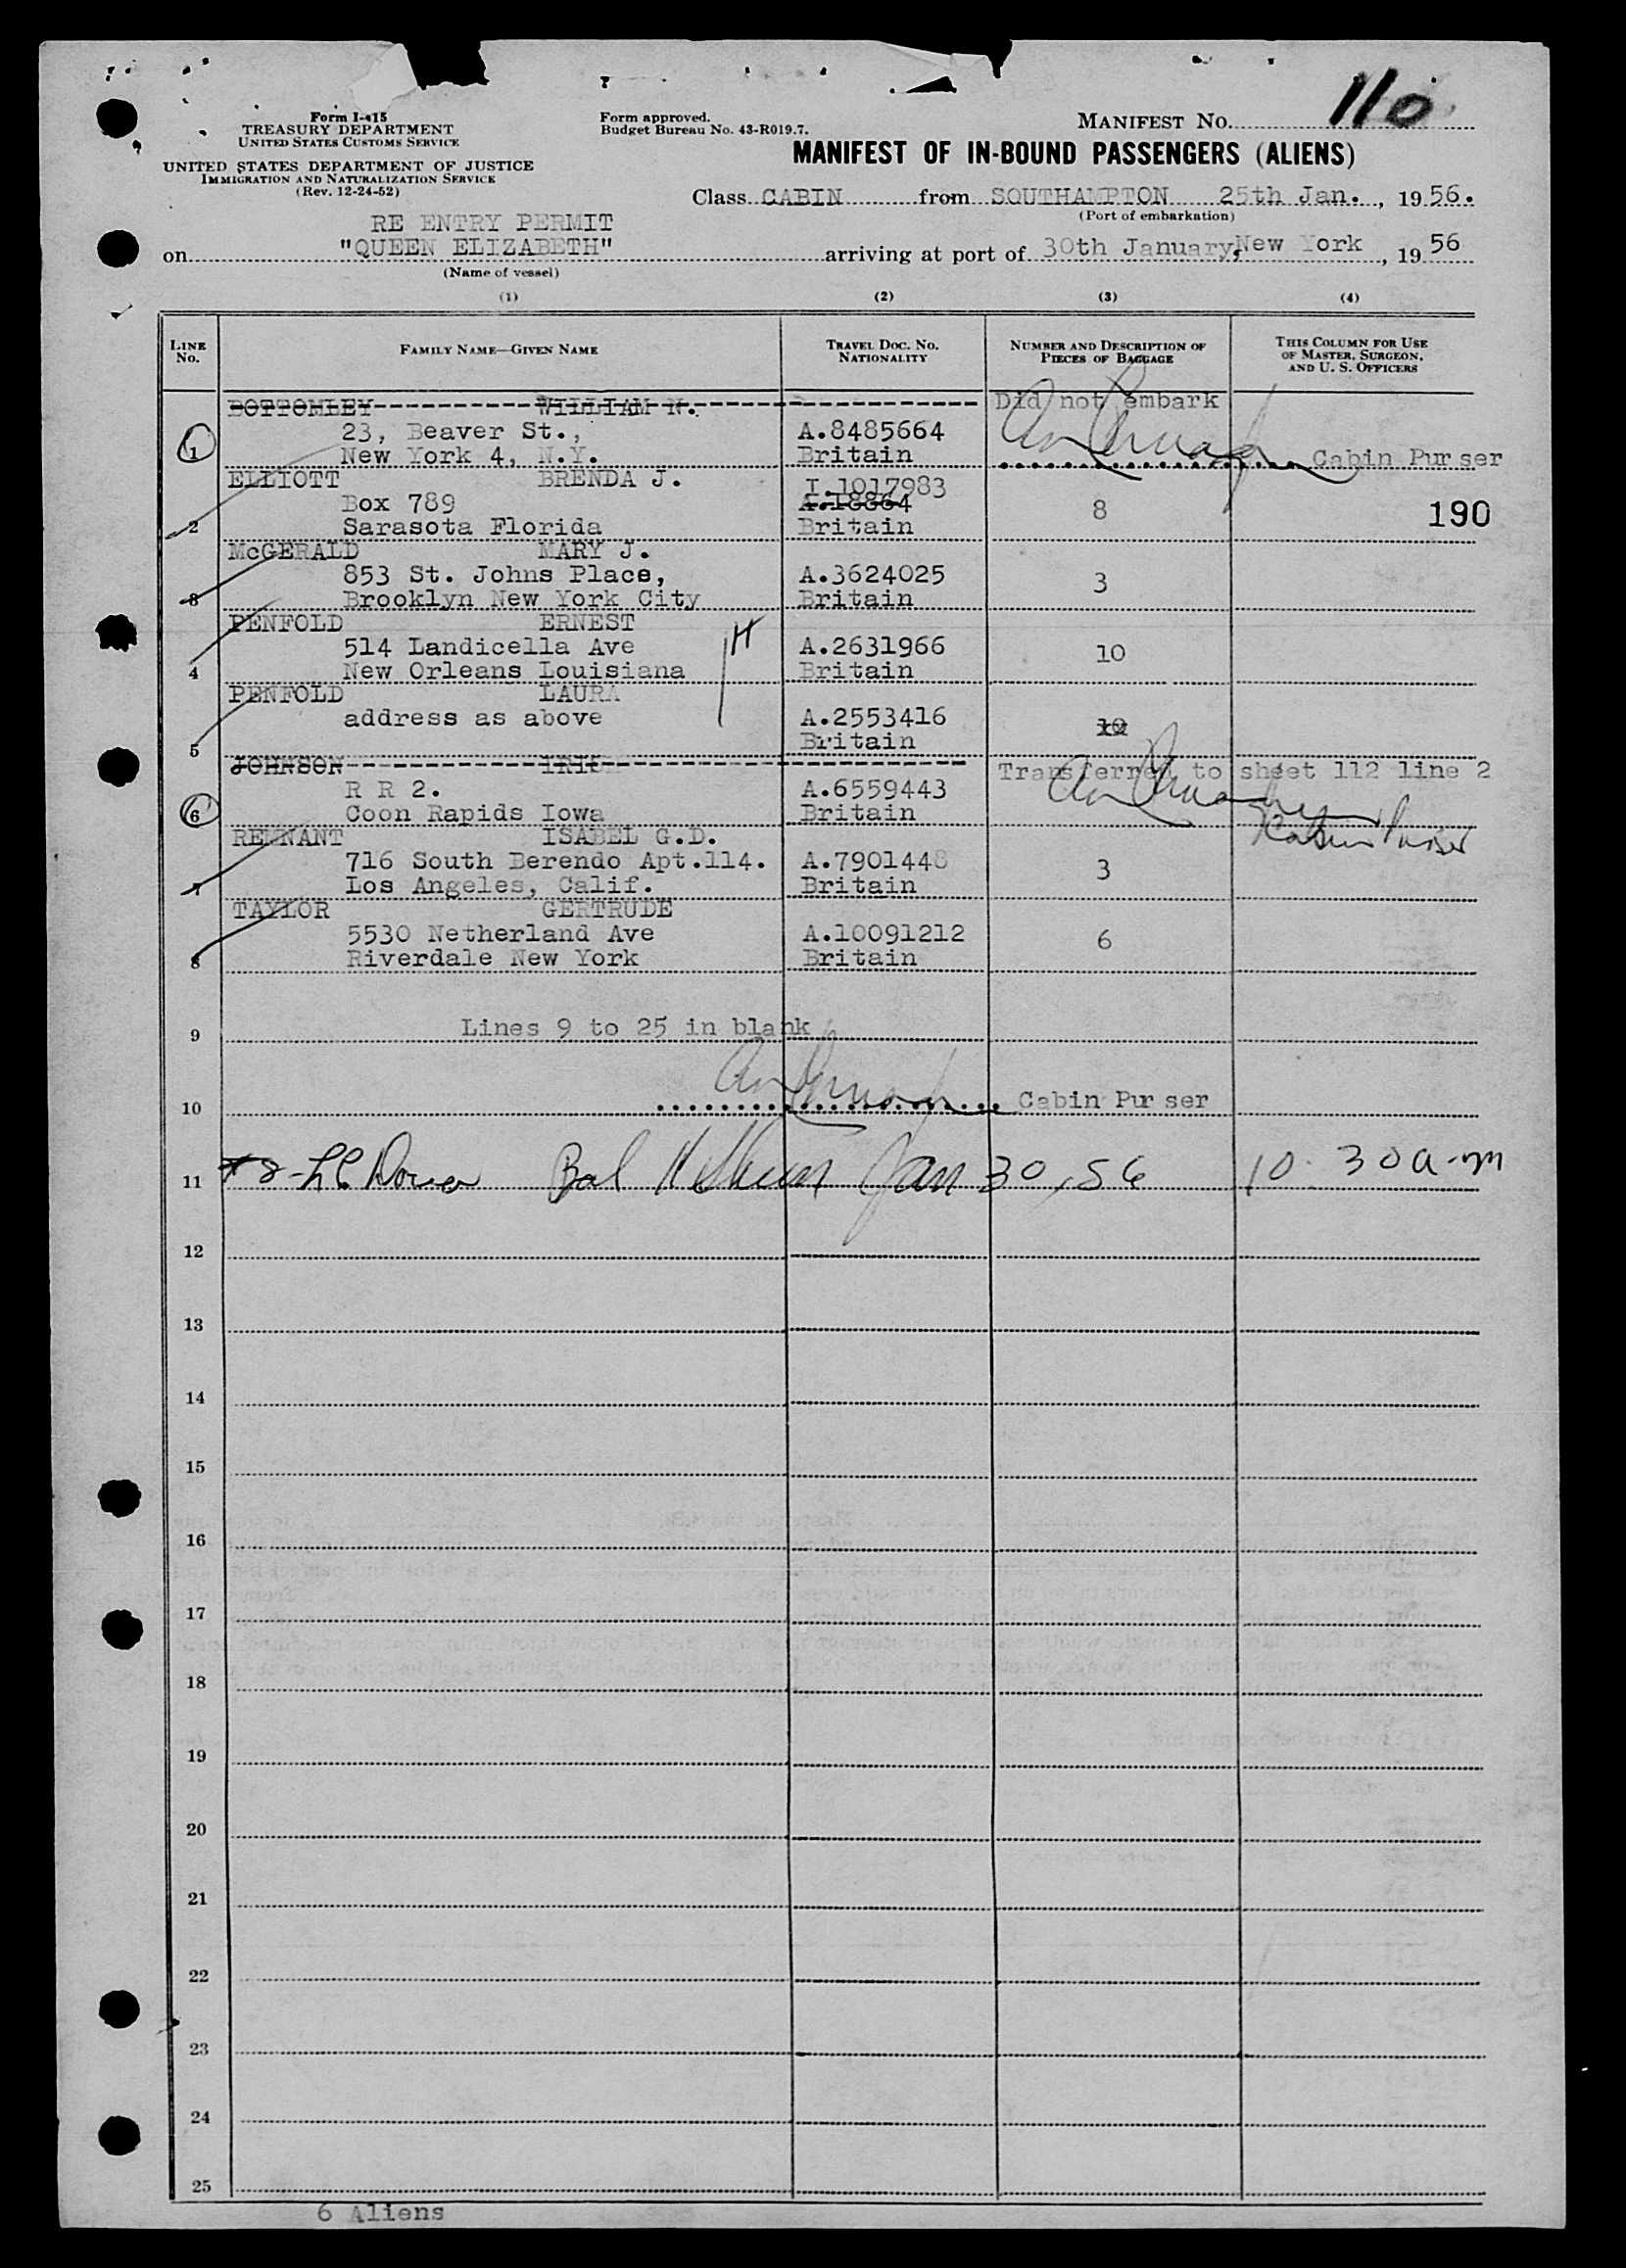 110
Form I-415
TREASURY DEPARTMENT
UNITED STATES CUSTOMS SERVICE
UNITED STATES DEPARTMENT OF JUSTICE
IMMIGRATION AND NATURALIZATION SERVICE
(Rev. 12-24-52)
Form approved.
Budget Bureau No. 43-R019.7.
MANIFEST NO.
MANIFEST OF IN-BOUND PASSENGERS (ALIENS)
Class CABIN from SOUTHAMPTON 25th Jan., 1956.
(Port of embarkation)
RE ENTRY PERMIT
on "QUEEN ELIZABETH" arriving at port of 30th January, New York, 1956
(Name of vessel)
(1) (2) (3) (4)
LINE No. FAMILY NAME—GIVEN NAME TRAVEL DOC. NO. NATIONALITY NUMBER AND DESCRIPTION OF PIECES OF BAGGAGE THIS COLUMN FOR USE OF MASTER, SURGEON, AND U. S. OFFICERS
BOTTOMLEY WILLIAM N. Did not embark
23, Beaver St., A.8485664
1 New York 4, N.Y. Britain Cabin Purser
ELLIOTT BRENDA J. I.1017983
Box 789 A.18864 8 190
2 Sarasota Florida Britain
McGERALD MARY J.
853 St. Johns Place, A.3624025 3
3 Brooklyn New York City Britain
PENFOLD ERNEST H
514 Landicella Ave A.2631966 10
4 New Orleans Louisiana Britain
PENFOLD LAURA
address as above A.2553416 10
5 Britain
JOHNSON IRIS Transferred to sheet 112 line 2
R R 2. A.6559443
6 Coon Rapids Iowa Britain Cabin Purser
REMNANT ISABEL G.D.
716 South Berendo Apt.114. A.7901448 3
7 Los Angeles, Calif. Britain
TAYLOR GERTRUDE
5530 Netherland Ave A.10091212 6
8 Riverdale New York Britain
9 Lines 9 to 25 in blank
10 Cabin Purser
11 #8- Bal Jan 30, 56 10:30 a.m
12
13
14
15
16
17
18
19
20
21
22
23
24
25
6 Aliens